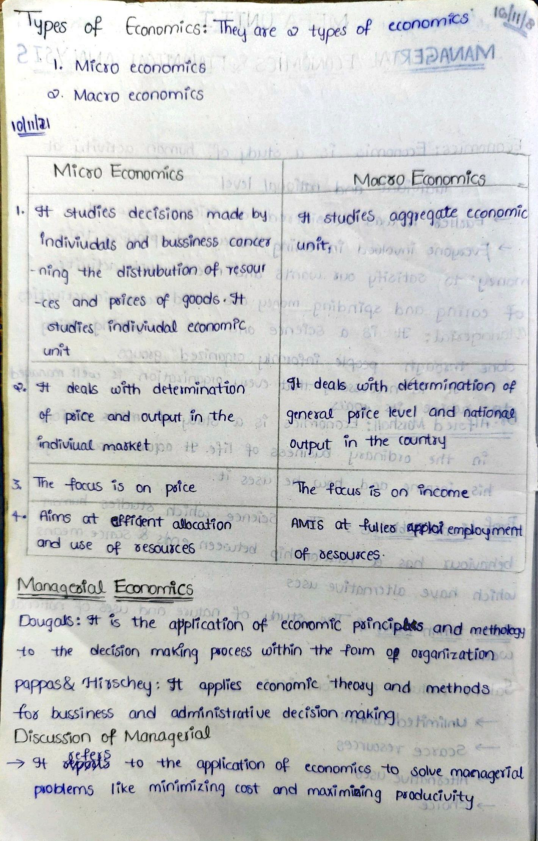 Types of Economics: They are 2 types of economics
1. Micro economics
2. Macro economics
10/11/21
Micro Economics
Macro Economics
1. It studies decisions made by
indiviudals and bussiness concer
-ning the distrubution of resour
-ces and prices of goods. It
studies indiviudal economic
unit
It studies aggregate economic
unit,
2. It deals with detemination
of price and output in the
indiviual market
It deals with determination of
general price level and national
output in the country
3. The focus is on price
The focus is on income
4. Aims at effident allocation
and use of resources
AMIS at fuller employment
of resources.
Managerial Economics
Dougals: It is the application of economic principles and methology
to the decision making process within the form of organization
pappas & Hirschey: It applies economic theory and methods
for bussiness and administrative decision making
Discussion of Managerial
→ It refers to the application of economics to solve managerial
problems like minimizing cost and maximining producivity